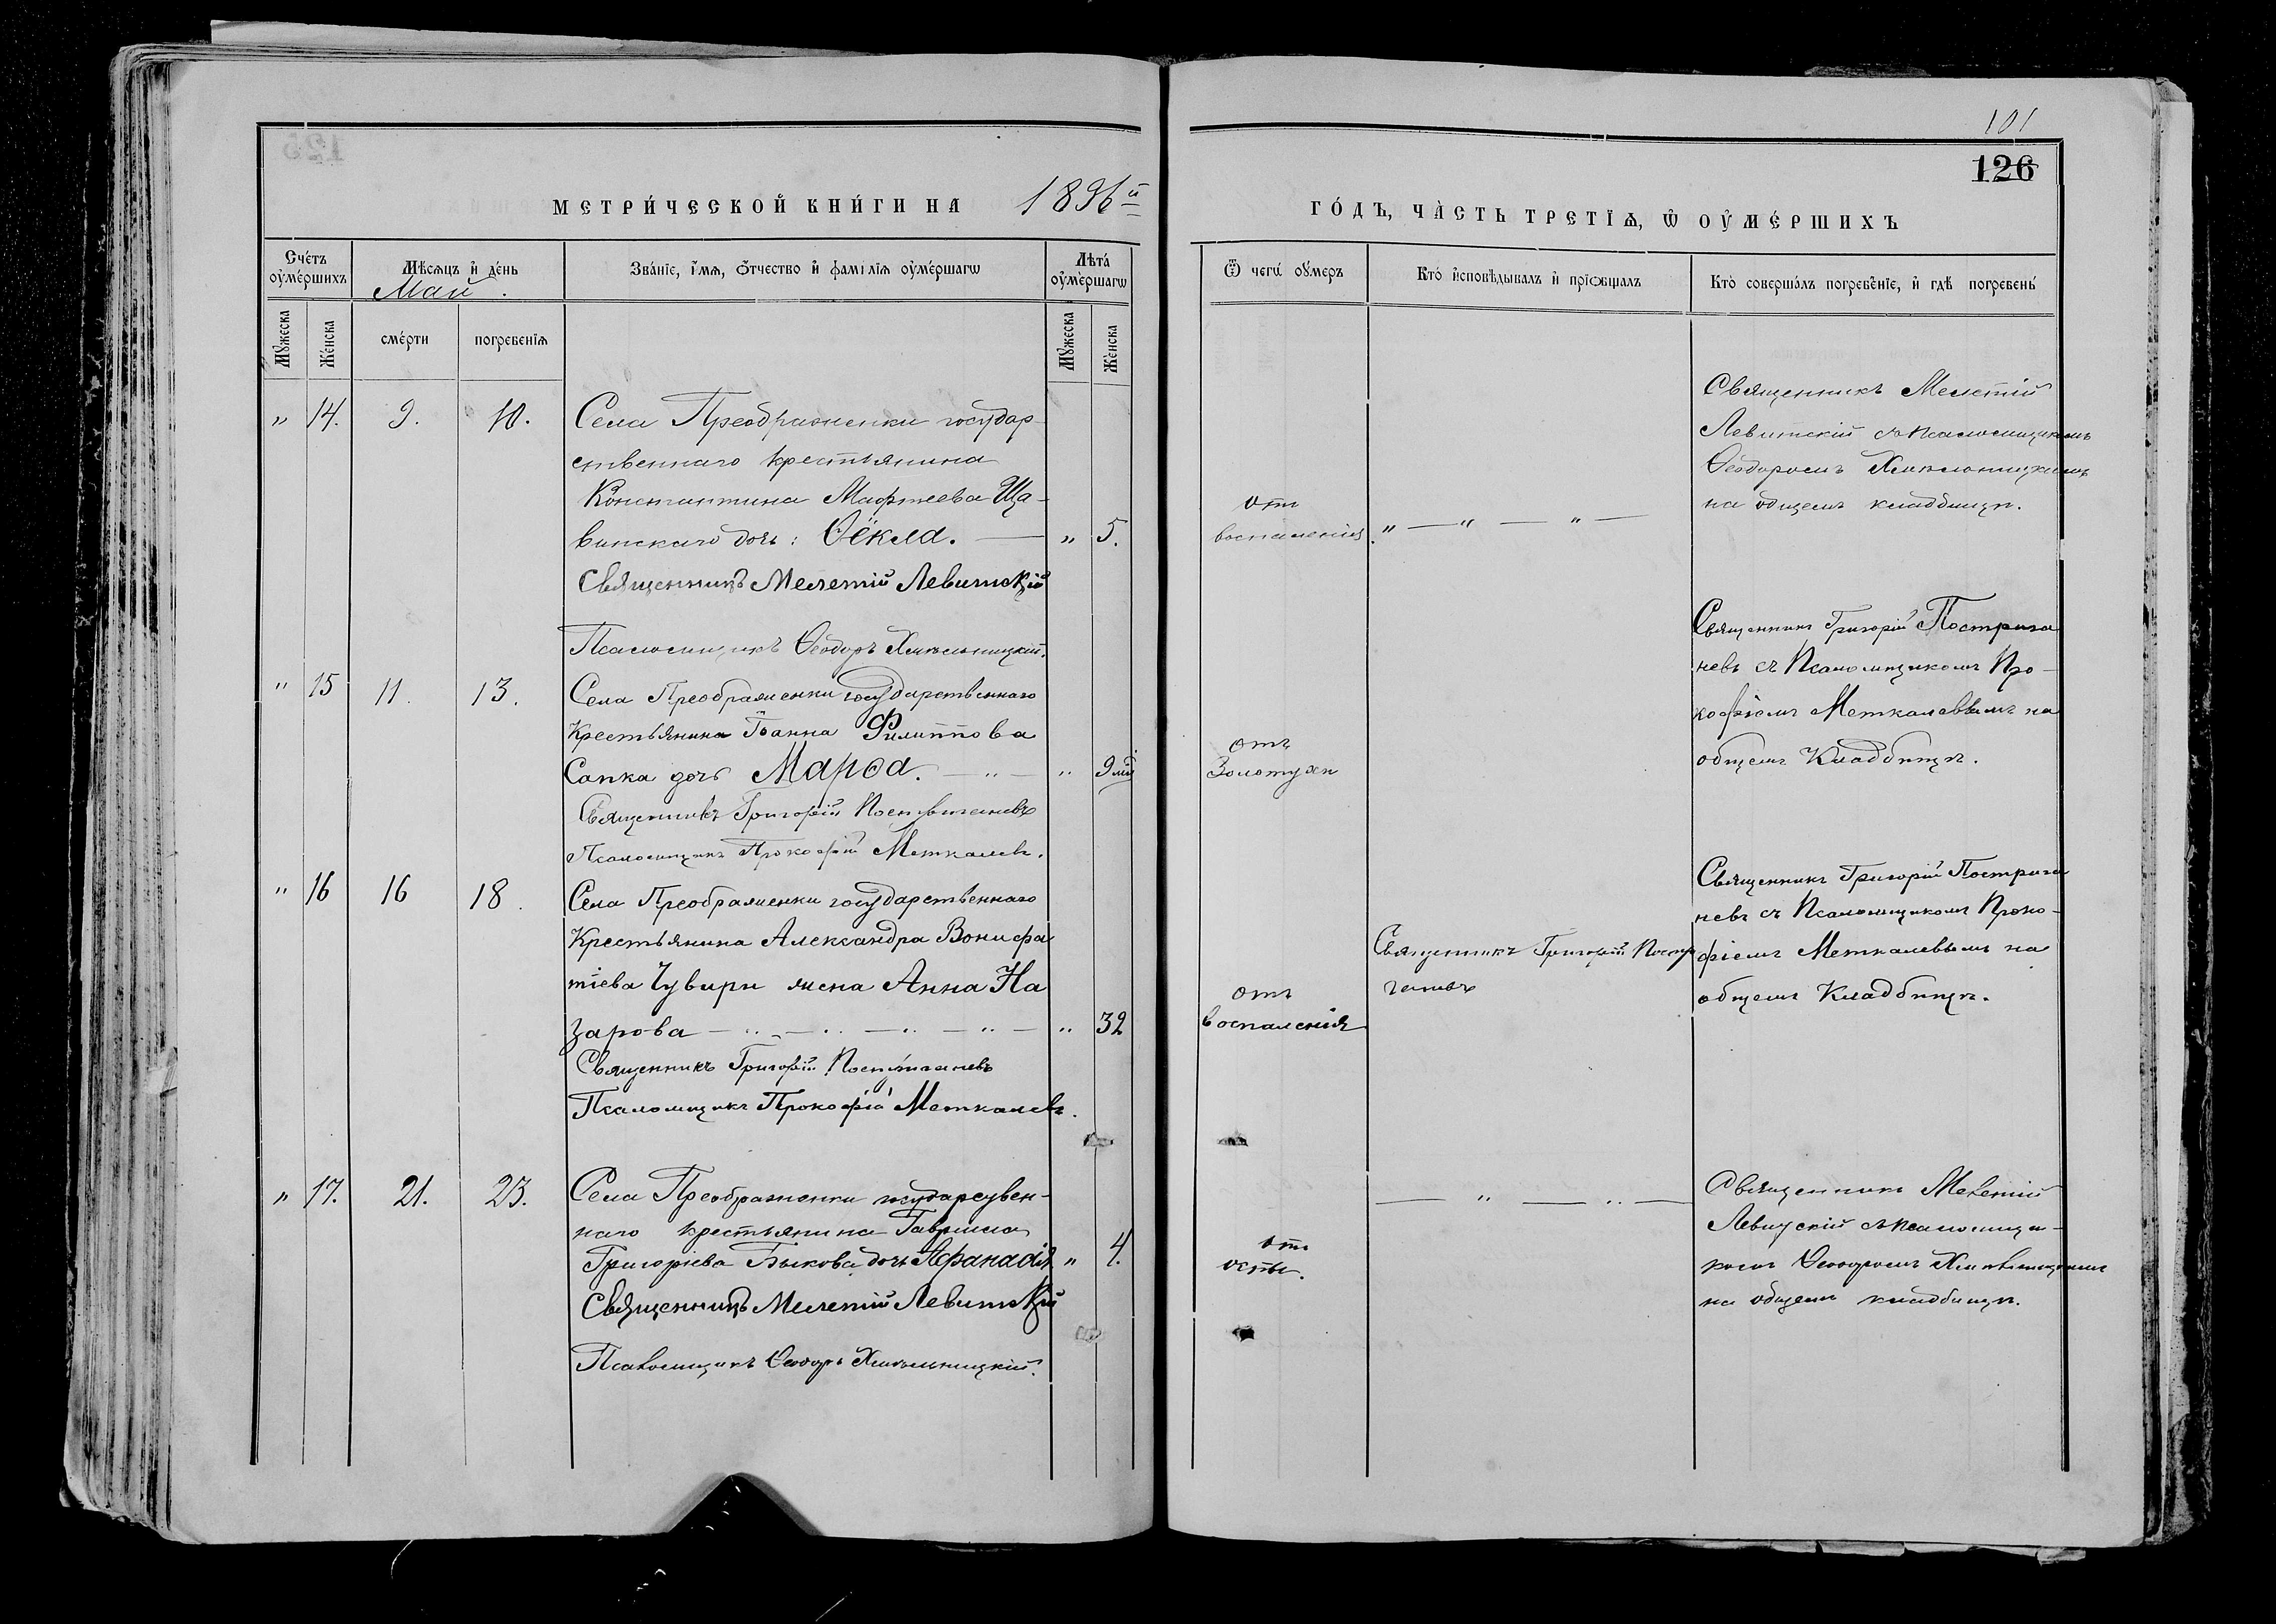 101
126
МЕТРИ́ЧЕСКОЙ КНИ́ГИ НА 1896й
ГО́ДЪ, ЧА́СТЬ ТРЕТІѦ, Ѿ ОУ҆МЕ́РШИХЪ
Сче́тъ оу҆ме́ршихъ
Мѣ́сѧцъ и҆ де́нь
Май.
Зва́нїе, и҆́мѧ, ѻ҆́тчество и҆ фамі́лїѧ оу҆ме́ршагѡ
Лѣта́ оу҆ме́ршагѡ
Ѿ чегѡ̀ оу҆́меръ
Кто̀ и҆сповѣ́дывалъ и҆ прїѡбща́лъ
Кто̀ соверша́лъ погребе́нїе, и҆ гдѣ̀ погребены̀
Мꙋ́жеска
Же́нска
сме́рти
погребе́нїѧ
Мꙋ́жеска
Же́нска
" 14. 9. 10. Села Преображенки государ-
ственнаго крестьянина
Константина Мафтеева Ща-
винскаго дочь: Ѳёкла. — " 5.
Священникъ Мелетій Левитскій
Псаломщикъ Ѳеодоръ Хмѣльницкій.
отъ
воспаленія
" — " — " —
Священникъ Мелетій
Левитскій съ псаломщикомъ
Ѳеодоромъ Хмѣльницкимъ
на общемъ кладбищѣ.
" 15 11. 13. Села Преображенки государственнаго
Крестьянина Іоанна Филиппова
Сапка дочь Марѳа. — " — " 9 мѣ
Священникъ Григорій Постриганевъ
Псаломщикъ Прокофій Меткалевъ.
отъ
Золотухи
Священникъ Григорій Пострига
невъ съ Псаломщикомъ Про-
кофіемъ Меткалевымъ на
общемъ Кладбищѣ.
" 16 16 18. Села Преображенки государственнаго
Крестьянина Александра Вонифа
тіева Чувири жена Анна На
зарова — " — " — " — " — " 32
Священникъ Григорій Постриганевъ
Псаломщикъ Прокофій Меткалевъ.
отъ
воспаленія
Священникъ Григорій Постри
ганевъ
Священникъ Григорій Пострига
невъ съ Псаломщикомъ Проко-
фіемъ Меткалевымъ на
общемъ Кладбищѣ.
" 17. 21. 23. Села Преображенки государствен-
наго крестьянина Гавриила
Григоріева Быкова дочь Афанасія " 4.
Священникъ Мелетій Левитскій
Псаломщикъ Ѳеодоръ Хмѣльницкій.
отъ
оспы.
— " — " —
Священникъ Мелетій
Левитскій съ псаломщи-
комъ Ѳеодоромъ Хмѣльницкимъ
на общемъ кладбищѣ.